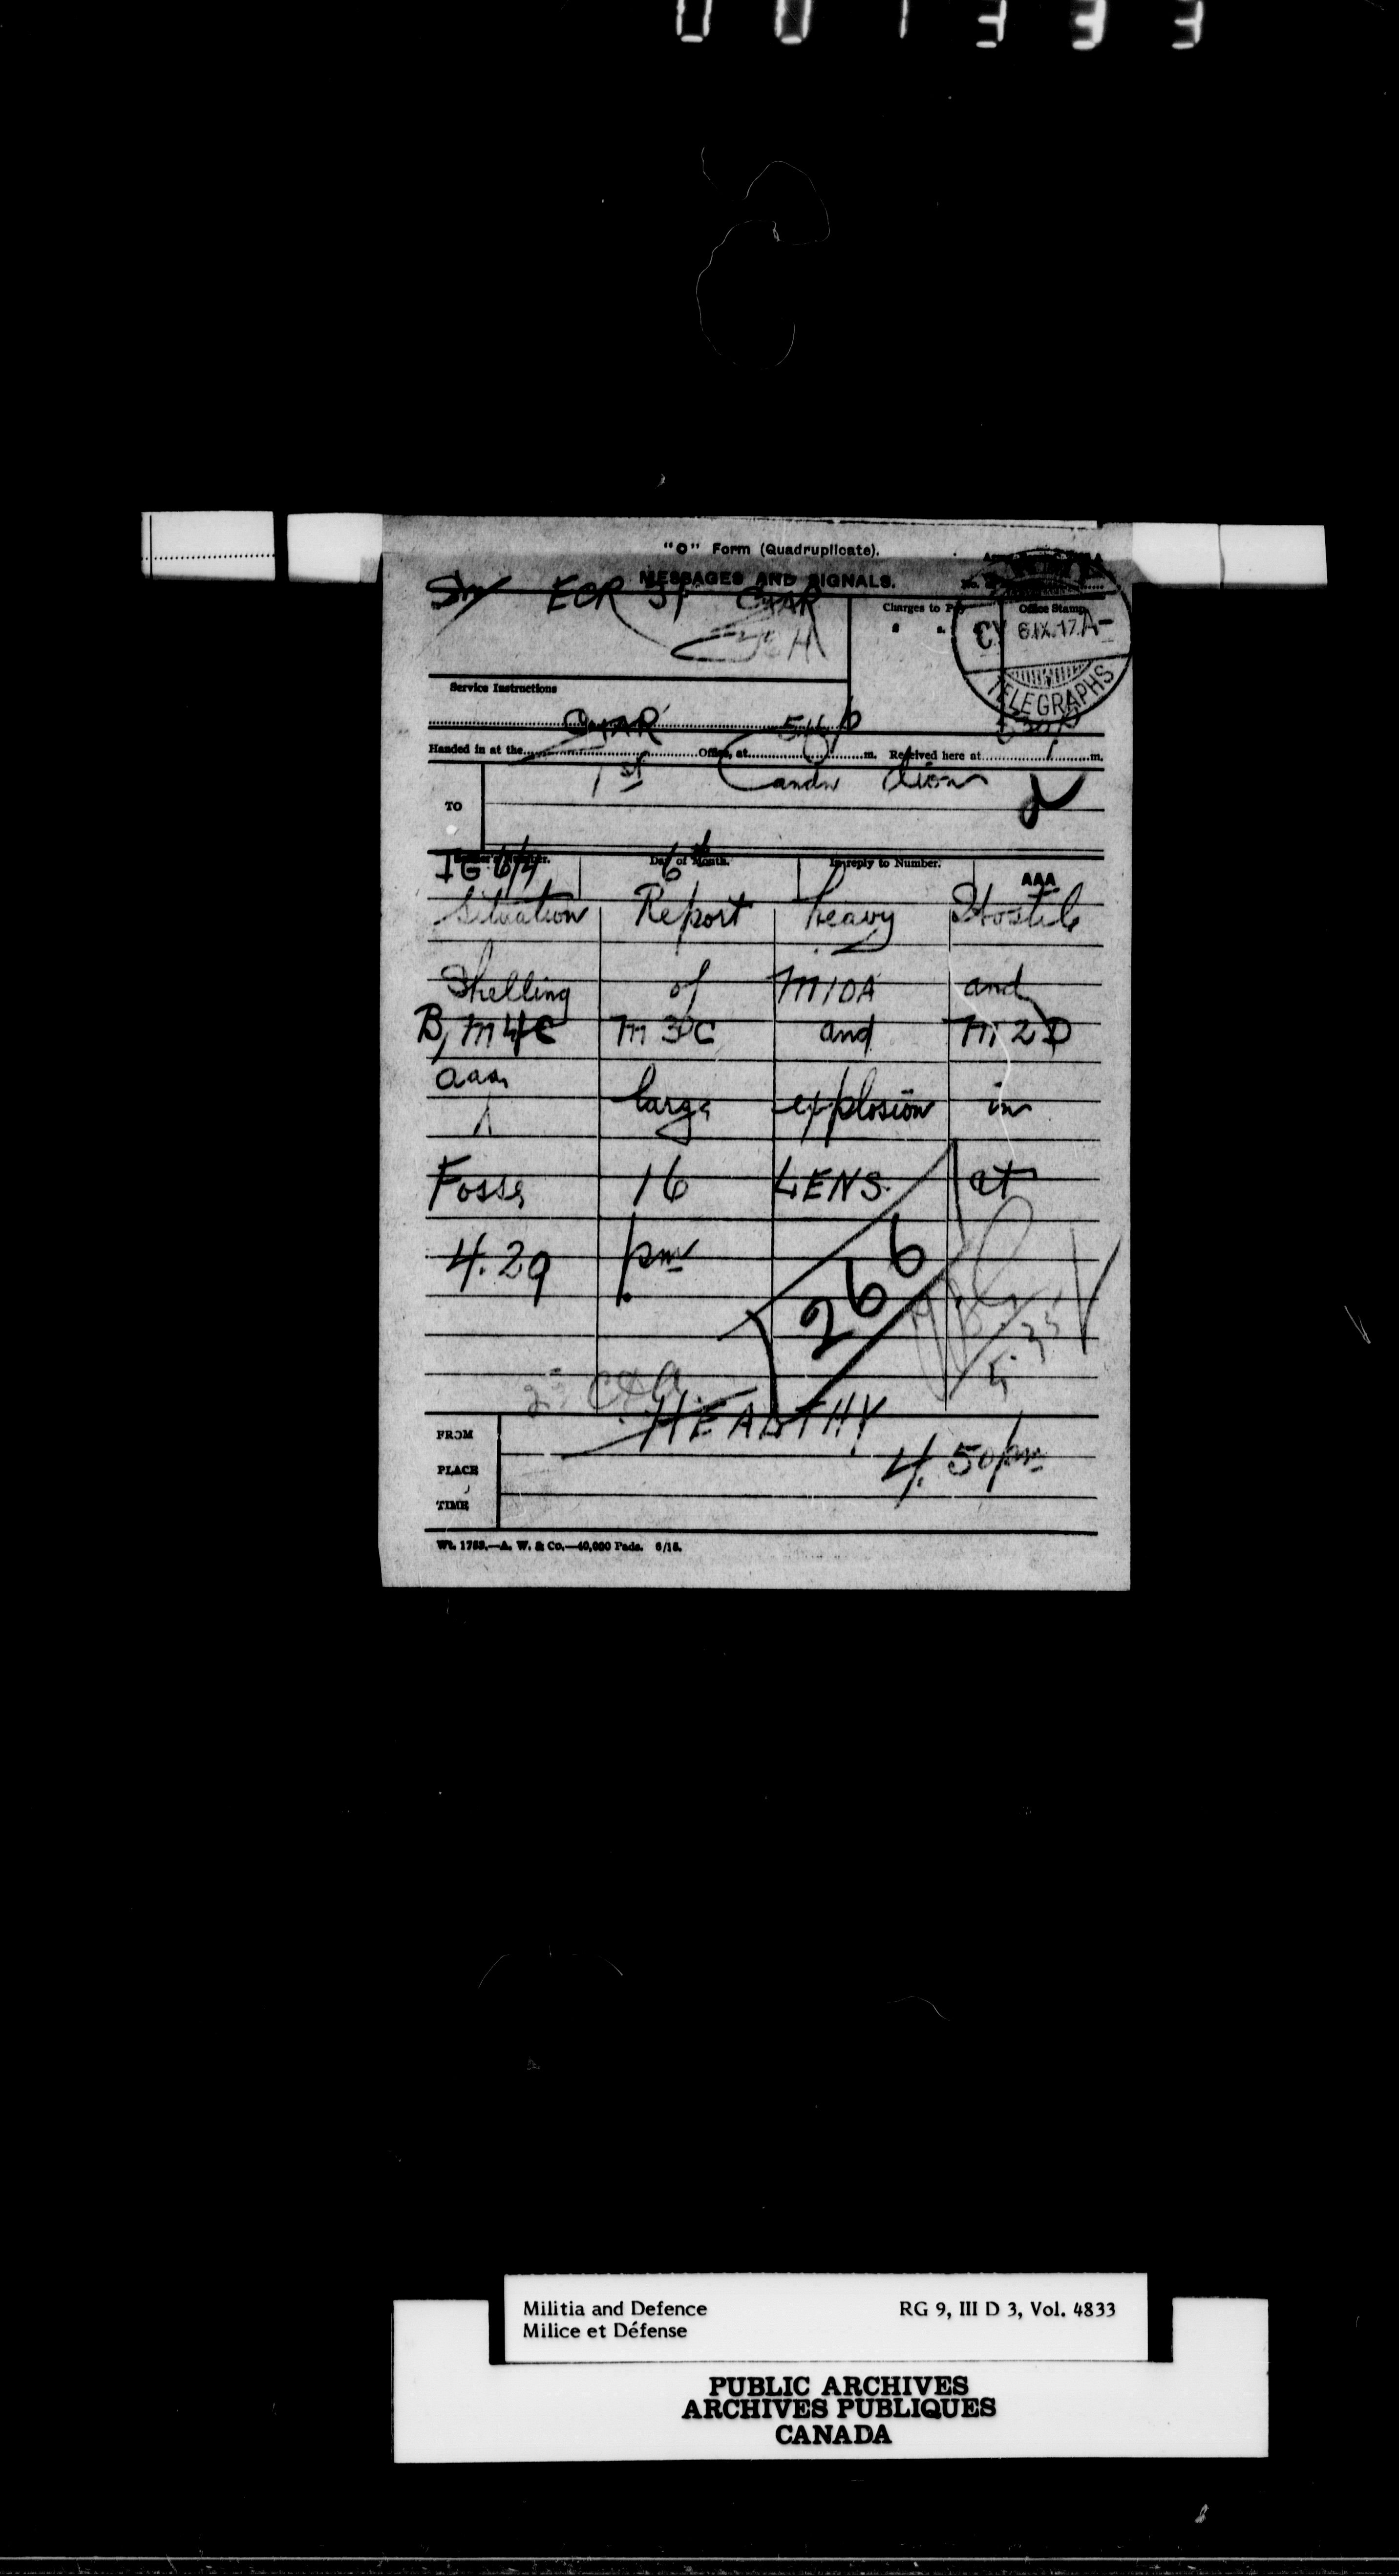 001333
"C" Form (Quadruplicate).
MESSAGES AND SIGNALS.
Sm EOR 31 CYAR
Charges to Pay
Office Stamp
CY 6.IX.17.A-
TELEGRAPHS
Service Instructions
CYAR
Handed in at the Office, at m. Received here at m.
TO 1st Candn Divn
IG 6/4 6th
Day of Month. In reply to Number. AAA
Situation Report heavy Hostile
Shelling of M10A and
B, M4C M3DC and M2D
aaa large explosion in
Fosse 16 LENS. at
4.29 pm
266
FROM HEALTHY
PLACE 4.50pm
TIME
Wt. 1753.—A. W. & Co.—40,000 Pads. 6/15.
Militia and Defence RG 9, III D 3, Vol. 4833
Milice et Défense
PUBLIC ARCHIVES
ARCHIVES PUBLIQUES
CANADA